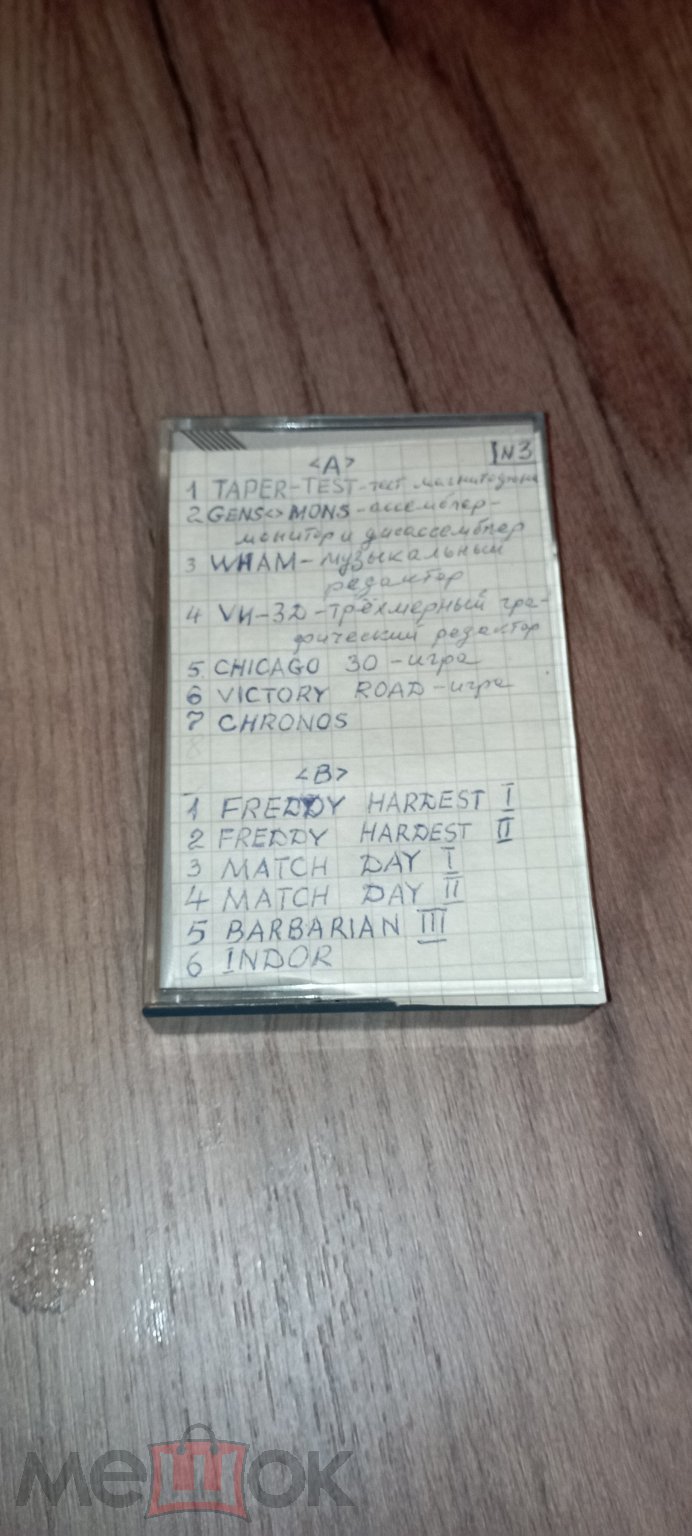 <A>
N3
1 TAPER-TEST-тест магнитофона
2 GENS<>MONS-ассемблер-
монитор и дисассемблер
3 WHAM-музыкальный
редактор
4 VU-3D-трёхмерный гра-
фический редактор
5 CHICAGO 30-игра
6 VICTORY ROAD-игра
7 CHRONOS
8
<B>
1 FREDDY HARDEST I
2 FREDDY HARDEST II
3 MATCH DAY I
4 MATCH DAY II
5 BARBARIAN III
6 INDOR
мешок